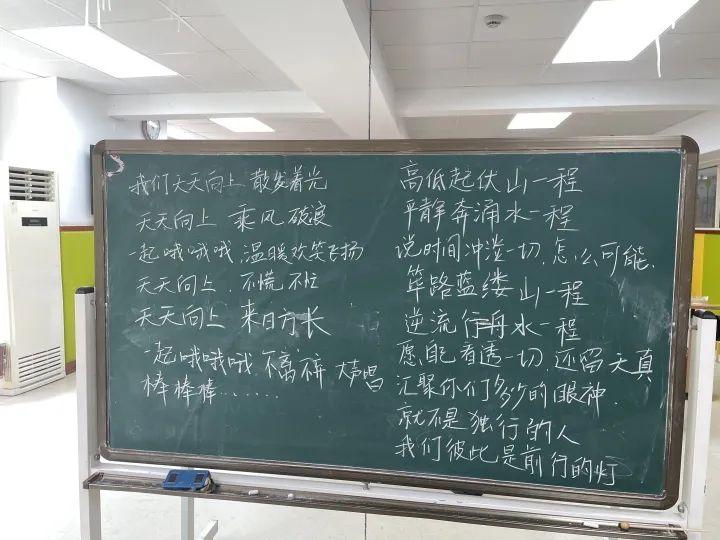 我们天天向上 散发着光
天天向上 乘风破浪
一起哦哦哦,温暖欢笑飞扬
天天向上,不慌不忙
天天向上 来日方长
一起哦哦哦,不离不弃 大声唱
棒棒棒……
高低起伏山一程
平静奔涌水一程
说时间冲淡一切,怎么可能,
筚路蓝缕山一程
逆流行舟水一程
愿自己看透一切,还留天真
汇聚你们多少的眼神,
就不是独行的人
我们彼此是前行的灯